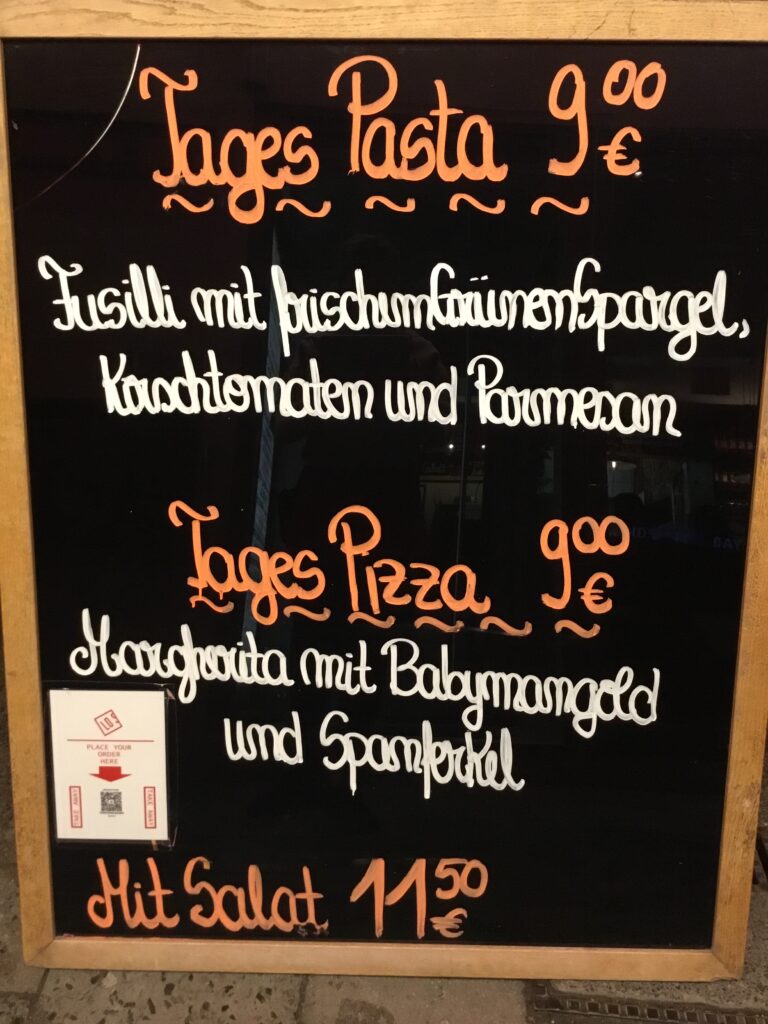 Tages Pasta 9⁰⁰ €
Fusilli mit frischem Grünen Spargel,
Kirschtomaten und Parmesan
Tages Pizza 9⁰⁰ €
Margherita mit Babymangold
und Spanferkel
LO
PLACE YOUR
ORDER
HERE
TAKE AWAY
Mit Salat 11⁵⁰ €